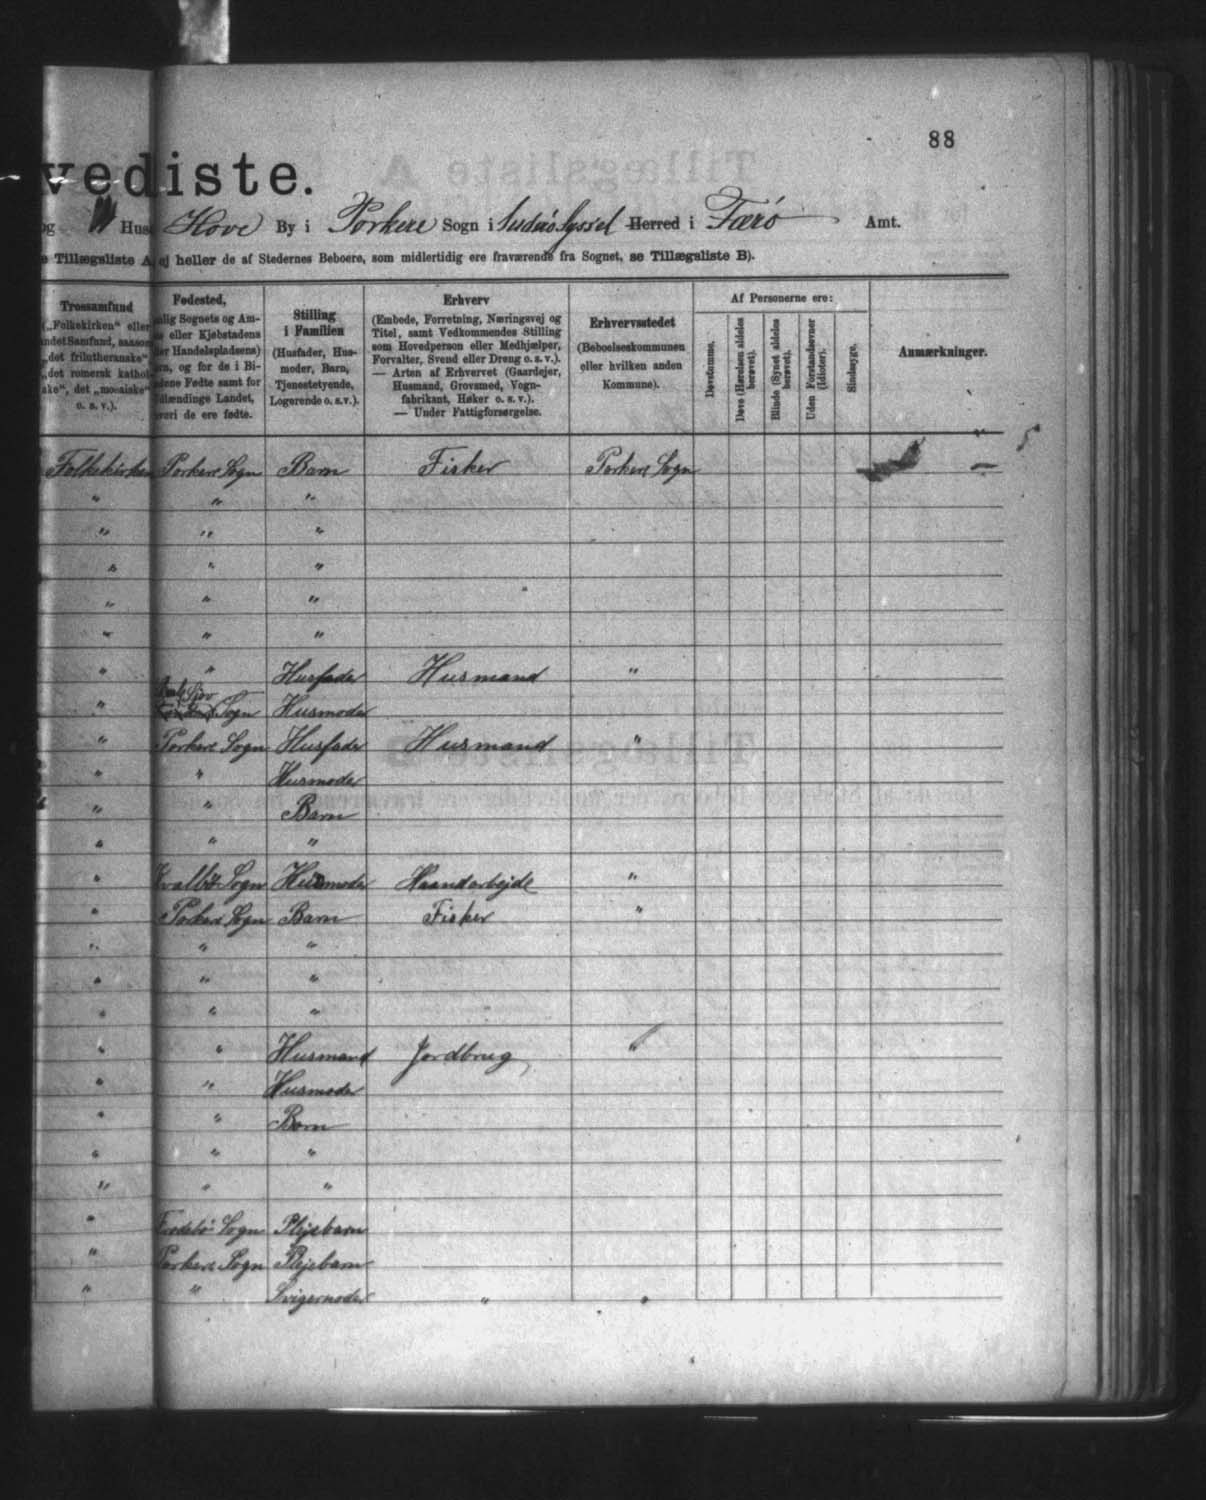 88
vediste.
og Hus Hove By i Porkere Sogn i Suderø Syssel Herred i Færø Amt.
e Tillægsliste A ej heller de af Stedernes Beboere, som midlertidig ere fraværende fra Sognet, se Tillægsliste B).
Trossamfund
(„Folkekirken“ eller
andet Samfund, saasom
„det frilutheranske“,
„det romersk kathol
ske“, det „mosaiske“
o. s. v.).
Fødested,
nlig Sognets og Am-
s eller Kjøbstadens
er Handelspladsens)
rn, og for de i Bi-
dene Fødte samt for
dlændinge Landet,
vori de ere fødte.
Stilling
i Familien
(Husfader, Hus-
moder, Barn,
Tjenestetyende,
Logerende o. s. v.).
Erhverv
(Embede, Forretning, Næringsvej og
Titel, samt Vedkommendes Stilling
som Hovedperson eller Medhjælper,
Forvalter, Svend eller Dreng o. s. v.).
— Arten af Erhvervet (Gaardejer,
Husmand, Grovsmed, Vogn-
fabrikant, Høker o. s. v.).
— Under Fattigforsørgelse.
Erhvervsstedet
(Beboelseskommunen
eller hvilken anden
Kommune).
Af Personerne ere:
Døvstumme.
Døve (Hørelsen aldeles berøvet).
Blinde (Synet aldeles berøvet).
Uden Forstandsevner (Idioter).
Sindssyge.
Anmærkninger.
Folkekirken Porkere Sogn Barn Fisker Porkere Sogn
" " "
" " "
" " "
" " "
" " "
" " Husfader Husmand "
" Sogn Husmoder
" Porkere Sogn Husfader Husmand "
" " Husmoder
" " Barn
" " "
" Kvalbø Sogn Husmoder Haandarbejde "
" Porkere Sogn Barn Fisker "
" " "
" " "
" " "
" " Husmand Jordbrug "
" " Husmoder
" " Barn
" " "
" " "
" Frodebø Sogn Plejebarn
" Porkere Sogn Plejebarn
" " Svigermoder " "